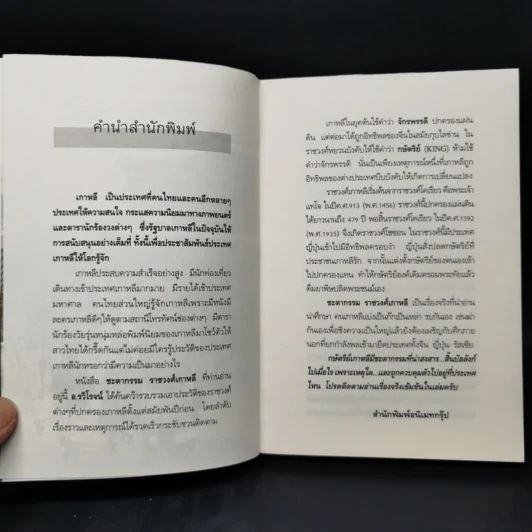 คำนำสำนักพิมพ์
เกาหลี เป็นประเทศที่คนไทยและคนอีกหลายๆ
ประเทศให้ความสนใจ กระแสความนิยมมาทางภาพยนตร์
และดารานักร้องวงต่างๆ ซึ่งรัฐบาลเกาหลีในปัจจุบันให้
การสนับสนุนอย่างเต็มที่ ทั้งนี้เพื่อประชาสัมพันธ์ประเทศ
เกาหลีให้โลกรู้จัก
เกาหลีประสบความสำเร็จอย่างสูง มีนักท่องเที่ยว
เดินทางเข้าประเทศเกาหลีมากมาย มีรายได้เข้าประเทศ
มหาศาล คนไทยส่วนใหญ่รู้จักเกาหลีเพราะมีหนังมี
ละครเกาหลีดีๆให้ดูตามสถานีโทรทัศน์ช่องต่างๆ มีดารา
นักร้องวัยรุ่นหนุ่มหล่อพิมพ์นิยมของเกาหลีมาโชว์ตัวให้
สาวไทยได้กรี๊ดกันแต่ไม่ค่อยมีใครรู้ประวัติของประเทศ
เกาหลีนักหรอกว่ามีความเป็นมาอย่างไร
หนังสือ ชะตากรรม ราชวงศ์เกาหลี ที่ท่านอ่าน
อยู่นี้ อ.รวิโรจน์ ได้ค้นคว้ารวบรวมเอาประวัติของราชวงศ์
ต่างๆที่ปกครองเกาหลี ตั้งแต่สมัยพันปีก่อน โดยลำดับ
เรื่องราวและเหตุการณ์ได้รวดเร็วกระชับชวนติดตาม
เกาหลีในยุคต้นใช้คำว่า จักรพรรดิ ปกครองแผ่น
ดิน แต่ต่อมาได้ถูกอิทธิพลของจีนในสมัยกุบไลข่าน ใน
ราชวงศ์หยวนบังคับให้ใช้คำว่า กษัตริย์ (KING) ห้ามใช้
คำว่าจักรพรรดิ นั่นเป็นเพียงเหตุการณ์หนึ่งที่เกาหลีถูก
อิทธิพลของต่างประเทศบีบบังคับให้เกิดการเปลี่ยนแปลง
ราชวงศ์เกาหลีเริ่มต้นจากราชวงศ์โครียว คือพระเจ้า
แทโจ ในปีค.ศ.913 (พ.ศ.1456) ราชวงศ์นี้ปกครองแผ่นดิน
ได้ยาวนานถึง 479 ปี พอสิ้นราชวงศ์โครียว ในปีค.ศ.1392
(พ.ศ.1935) จึงเกิดราชวงศ์โชซอน ในราชวงศ์นี้มีประเทศ
ญี่ปุ่นเข้าไปมีอิทธิพลครอบงำ ญี่ปุ่นสั่งปลดกษัตริย์ที่
ประชาชนเกาหลีรัก จากนั้นแต่งตั้งกษัตริย์ของตนเอง
เข้าไปปกครองแทน ทำให้กษัตริย์องค์เดิมตรอมพระทัยแล้ว
ดื่มยาพิษปลิดพระชนม์เอง
ชะตากรรม ราชวงศ์เกาหลี เป็นเรื่องจริงที่น่าอ่าน
น่าศึกษา คนเกาหลีแบ่งเป็นก๊กเป็นเหล่า รบกันเอง เข่นฆ่า
กันเองเพื่อชิงความเป็นใหญ่แล้วยังต้องเผชิญกับศึกภาย
นอกที่ยกกำลังพลเข้ามายึดประเทศทั้งจีน ญี่ปุ่น รัสเซีย
กษัตริย์เกาหลีมีชะตากรรมที่น่าสงสาร...สิ้นบัลลังก์
ไปเมื่อไร เพราะเหตุใด...และถูกควบคุมตัวไปอยู่ที่ประเทศ
ไหน โปรดติดตามอ่านเรื่องจริงเข้มข้นในเล่มครับ
สำนักพิมพ์อนิเมทกรุ๊ป